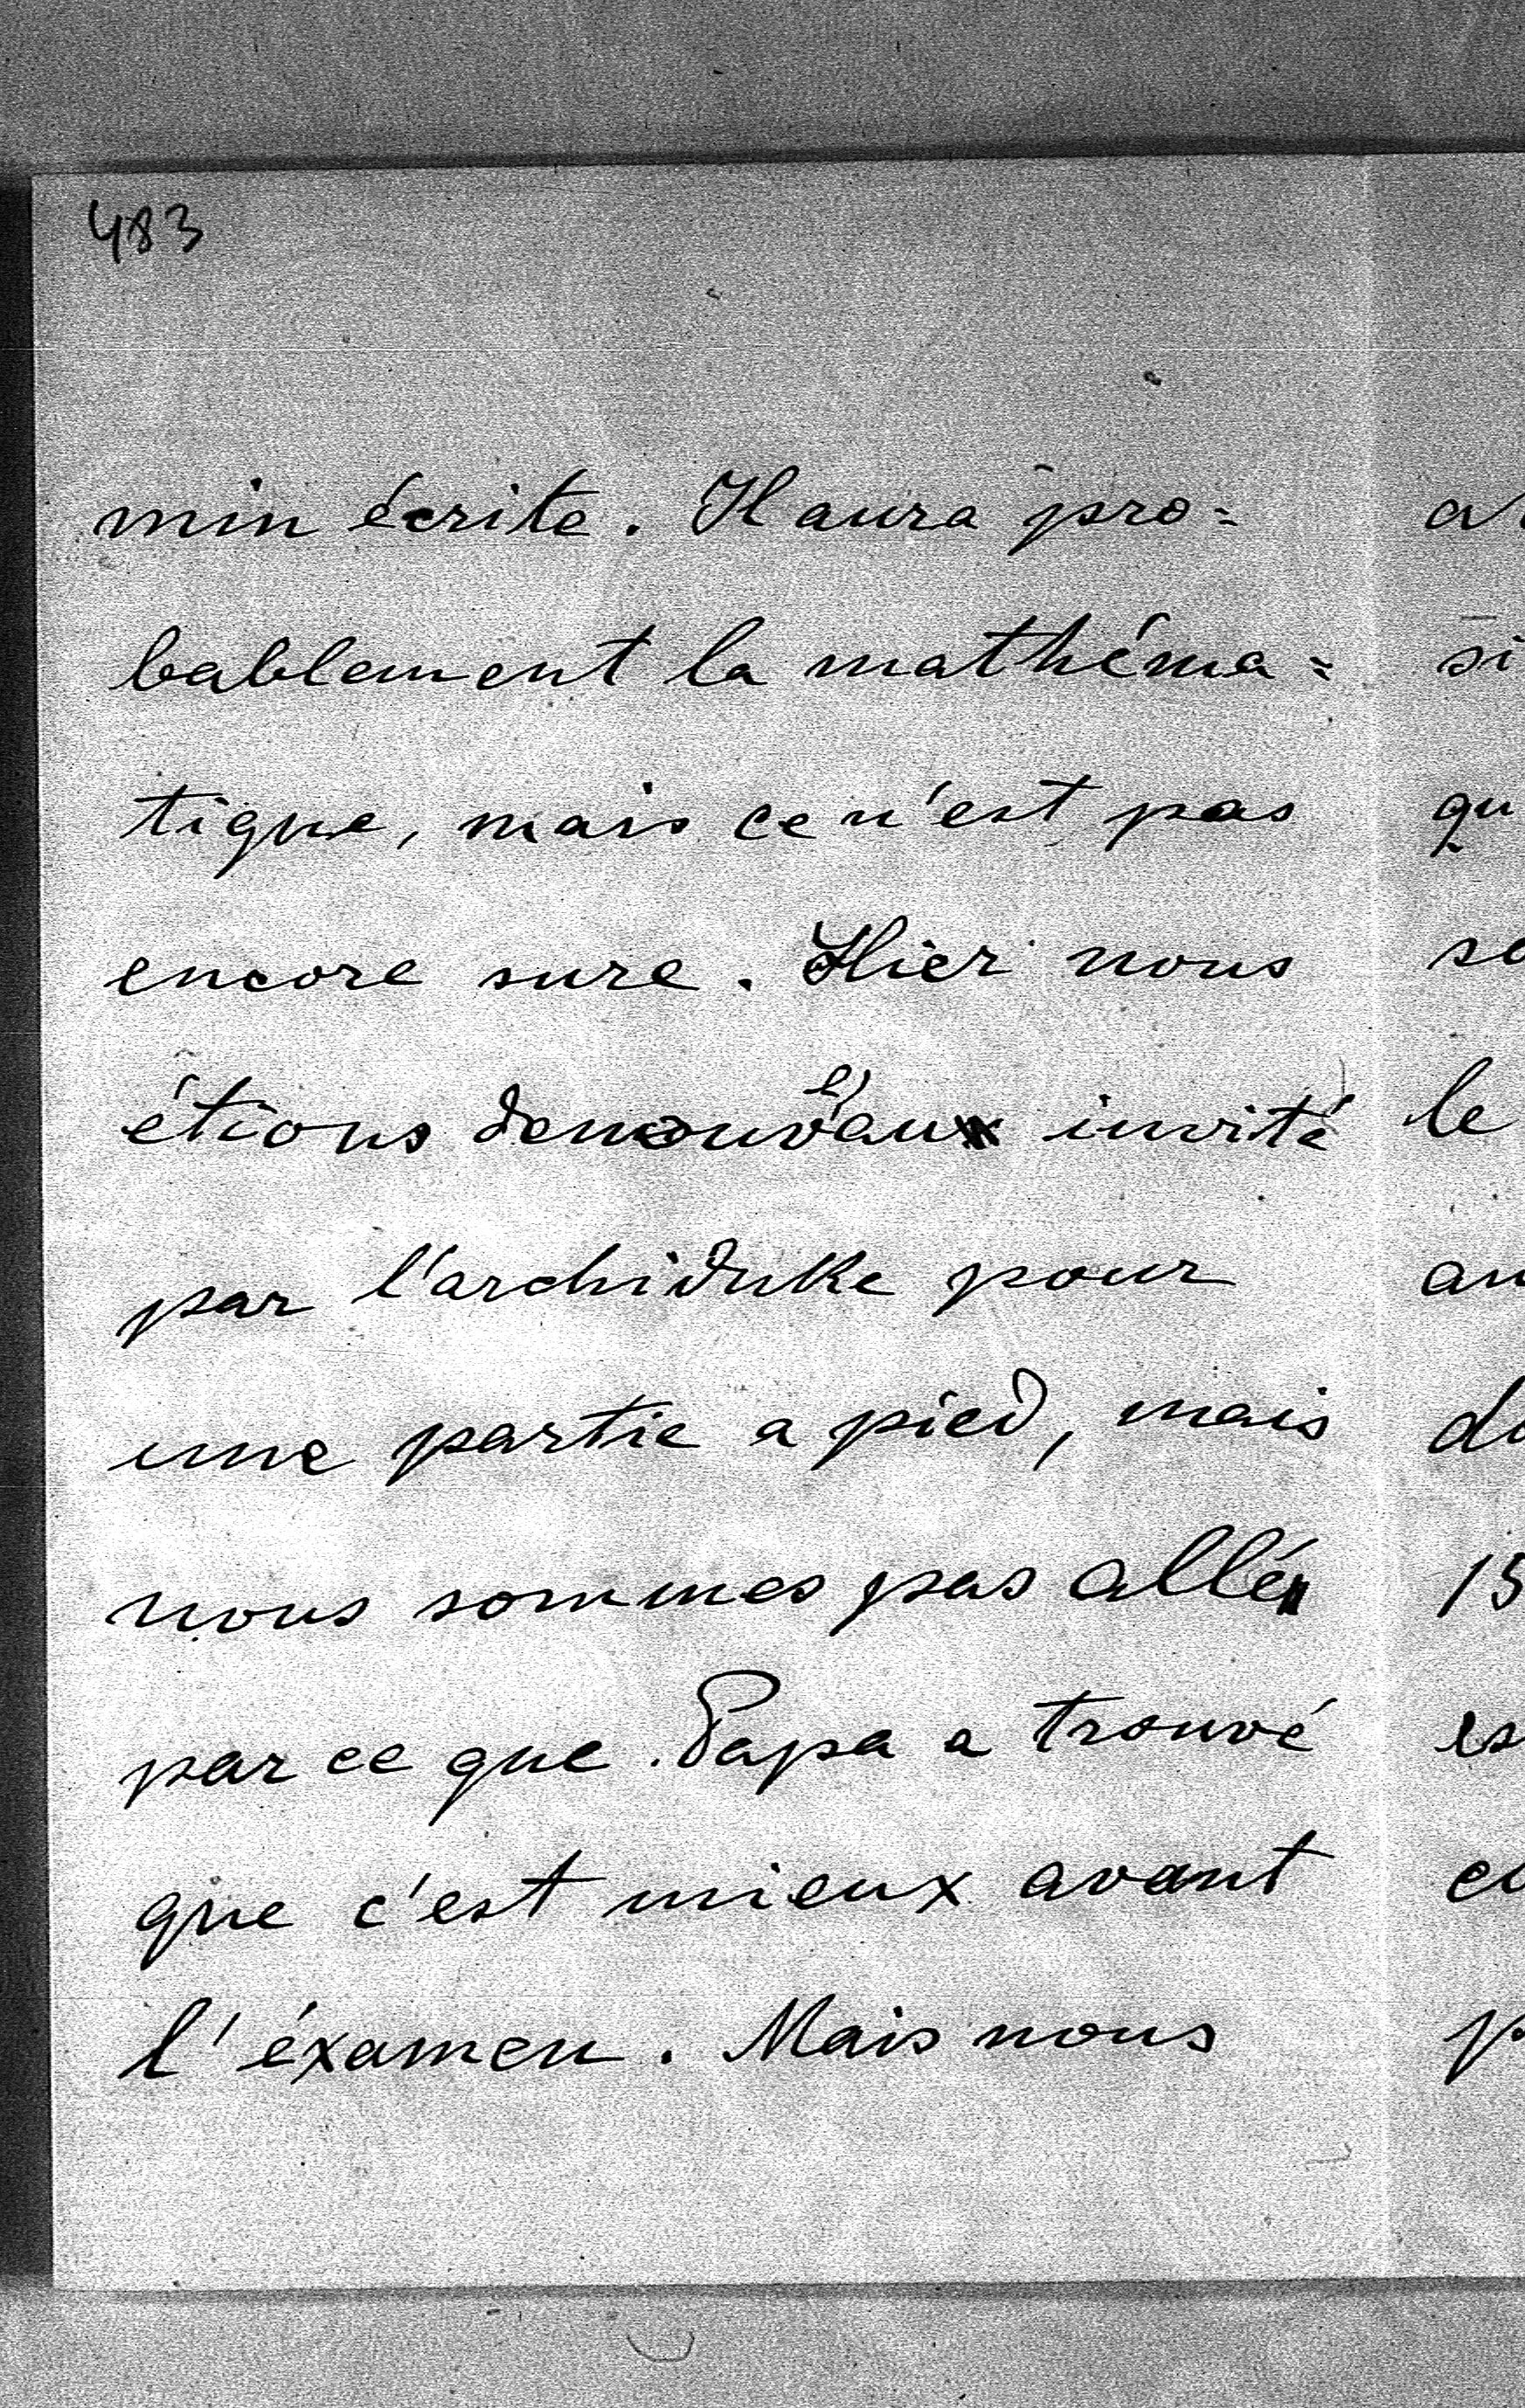 483
min écrite. Il aura pro=
bablement la mathéma=
tique, mais ce n'est pas
encore sure. Hier nous
étions denouveau invité
par l'archiduke pour
une partie a pied, mais
nous sommes pas allé
par ce que Papa a trouvé
que c'est mieux avant
l'éxamen. Mais nous
si
qu
le
15